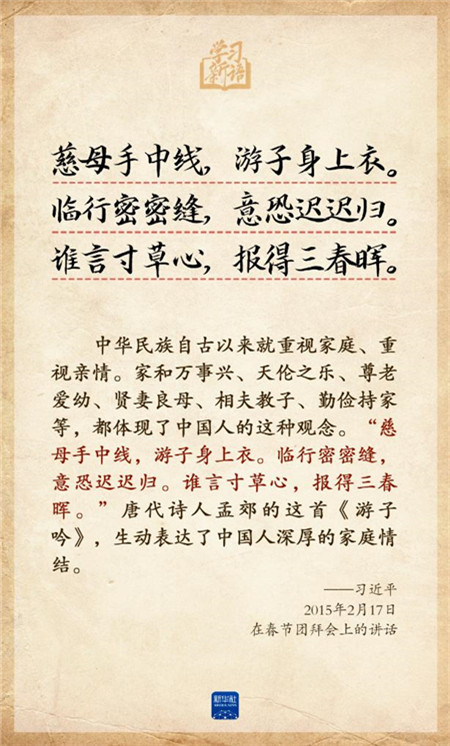 学习
新语
慈母手中线，游子身上衣。
临行密密缝，意恐迟迟归。
谁言寸草心，报得三春晖。
中华民族自古以来就重视家庭、重
视亲情。家和万事兴、天伦之乐、尊老
爱幼、贤妻良母、相夫教子、勤俭持家
等，都体现了中国人的这种观念。“慈
母手中线，游子身上衣。临行密密缝，
意恐迟迟归。谁言寸草心，报得三春
晖。”唐代诗人孟郊的这首《游子
吟》，生动表达了中国人深厚的家庭情
结。
——习近平
2015年2月17日
在春节团拜会上的讲话
新华社